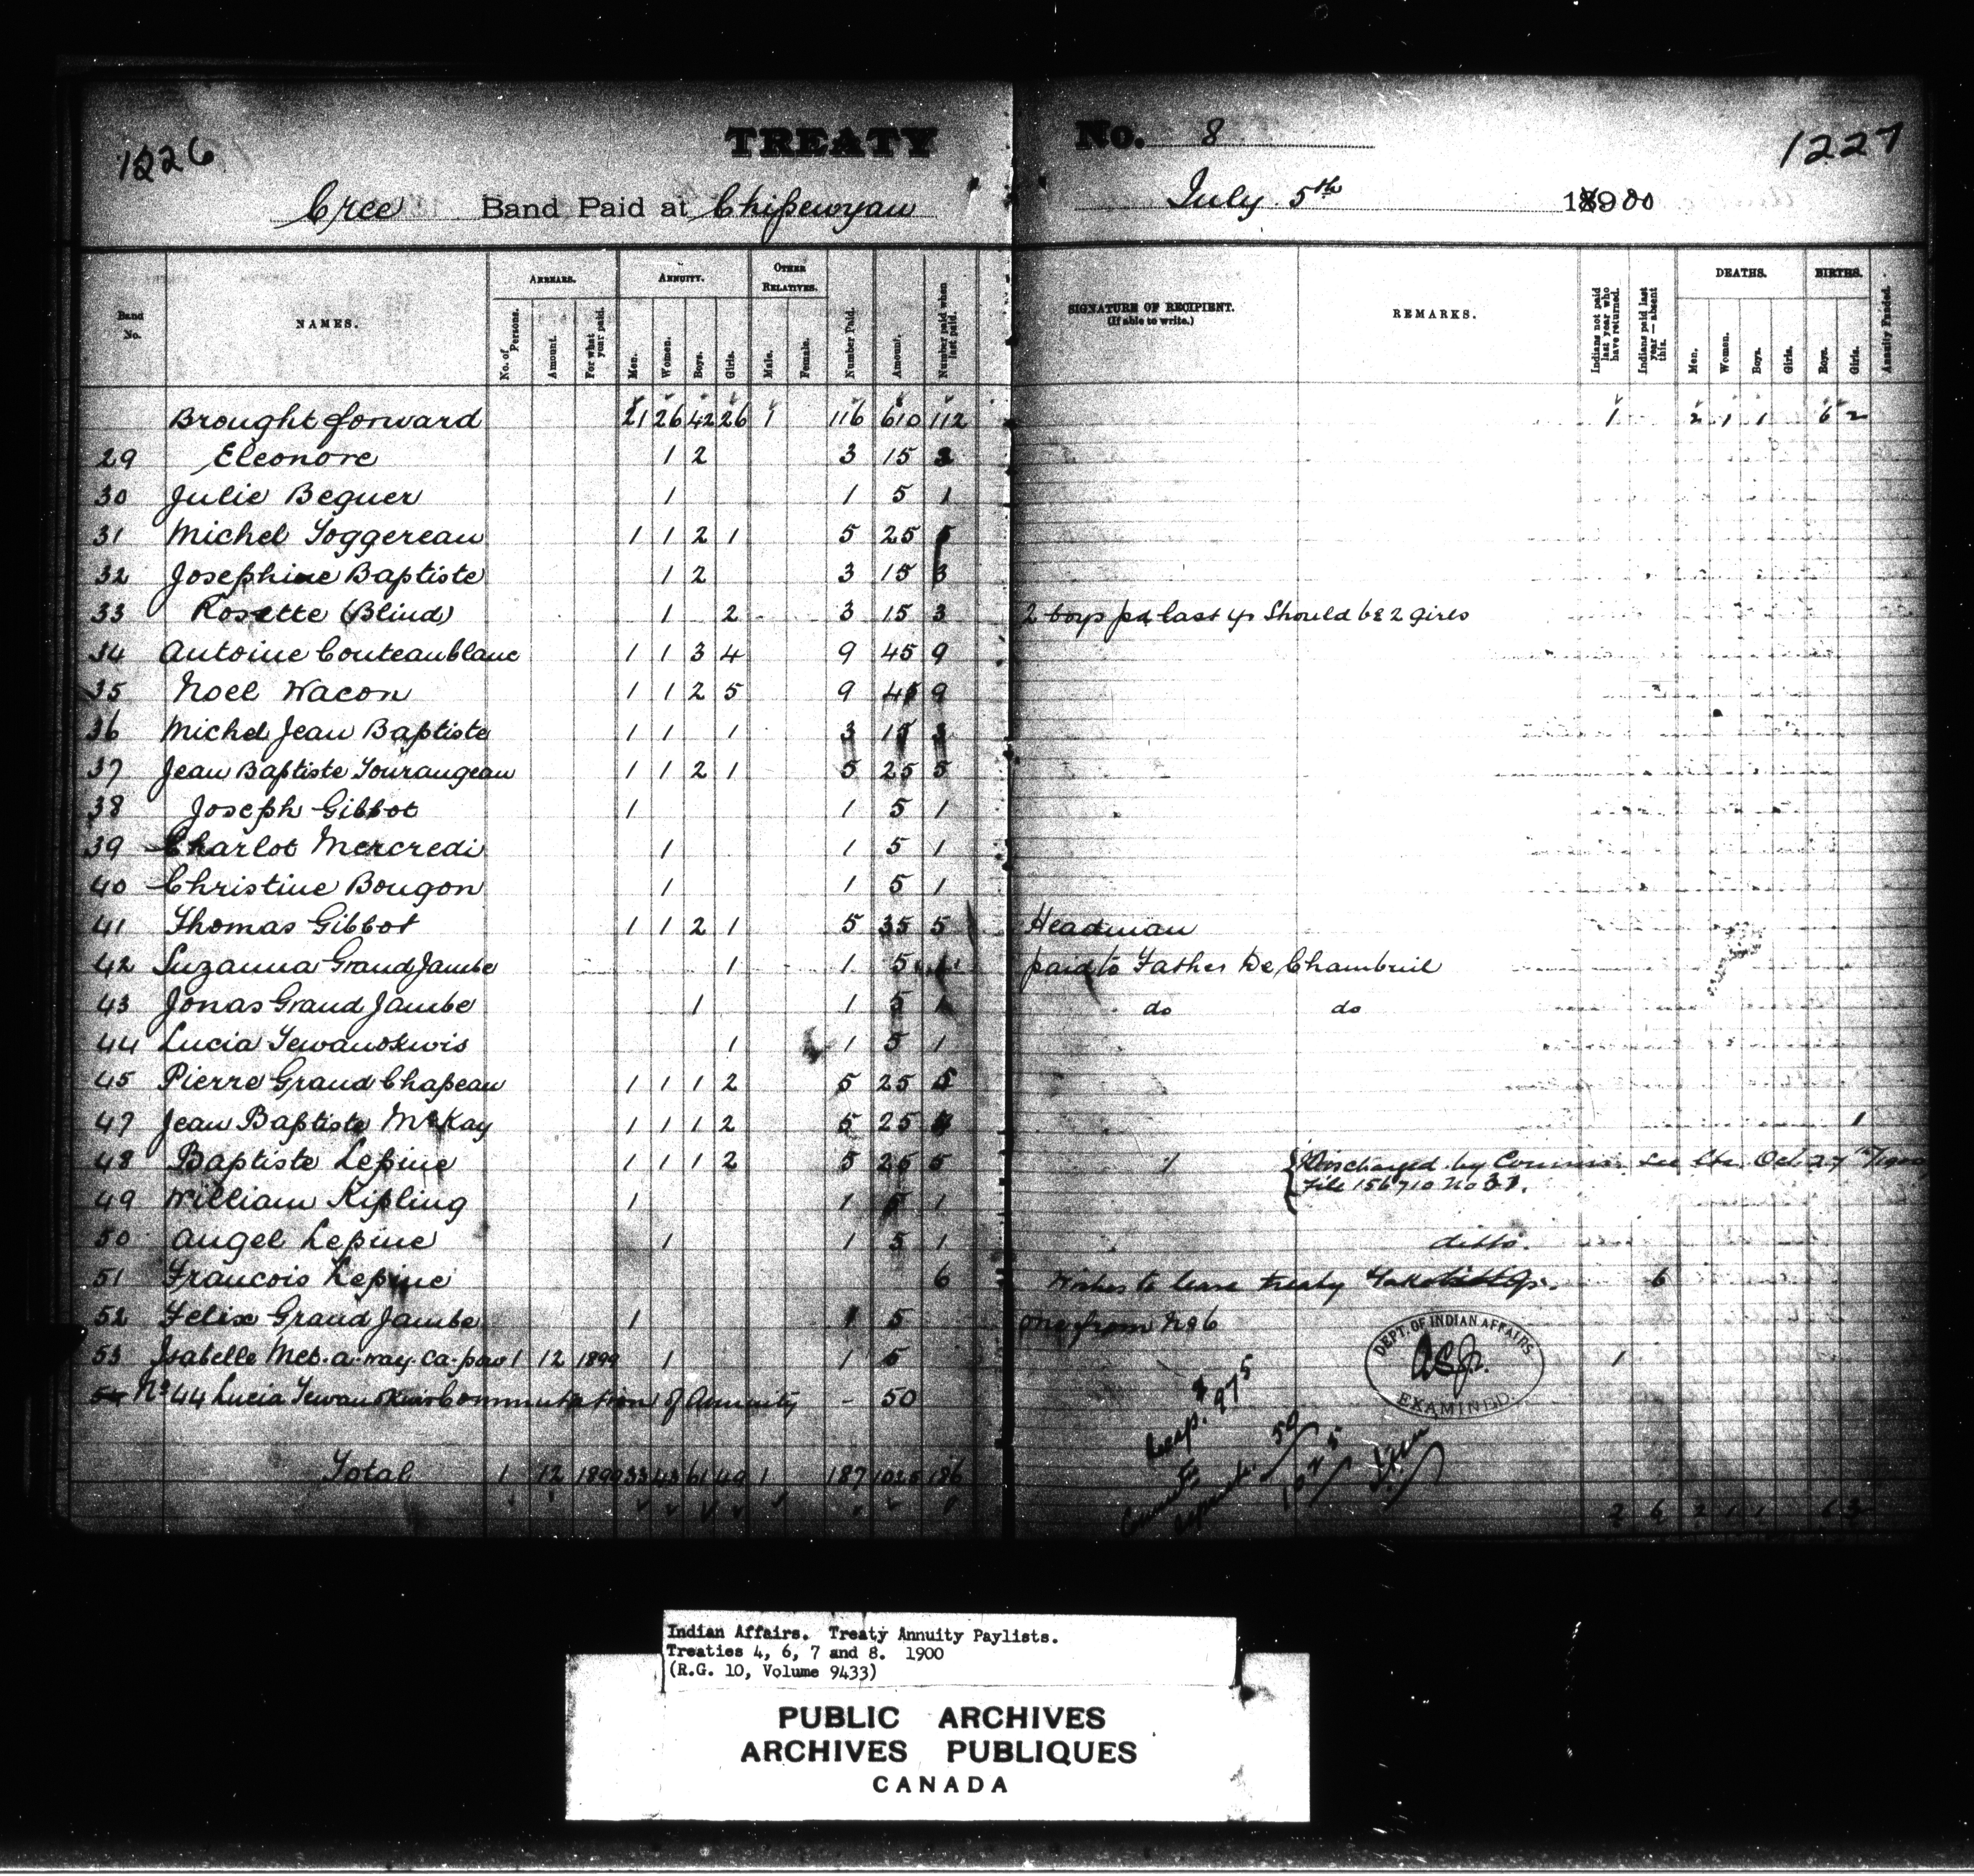 1226
TREATY No. 8
1227
Cree Band Paid at Chipewyan July 5th 1900
Band No.
NAMES.
ARREARS.
No. of Persons.
Amount.
For what year paid.
ANNUITY.
Men.
Women.
Boys.
Girls.
OTHER RELATIVES.
Male.
Female.
Number Paid.
Amount.
Number paid when last paid.
SIGNATURE OF RECIPIENT.
(If able to write.)
REMARKS.
Indians not paid last year who have returned.
Indians paid last year — absent this.
DEATHS.
Men.
Women.
Boys.
Girls.
BIRTHS.
Boys.
Girls.
Annuity Funded.
Brought forward 21 26 42 26 1 116 610 112 1 2 1 1 6 2
29 Eleonore 1 2 3 15 3
30 Julie Bequer 1 1 5 1
31 Michel Toggereau 1 1 2 1 5 25 5
32 Josephine Baptiste 1 2 3 15 3
33 Rosette (Blind) 1 2 3 15 3 2 boys pd last yr Should be 2 girls
34 Antoine Couteaublanc 1 1 3 4 9 45 9
35 Noel Wacon 1 1 2 5 9 45 9
36 Michel Jean Baptiste 1 1 1 3 15 3
37 Jean Baptiste Tourangeau 1 1 2 1 5 25 5
38 Joseph Gibbot 1 1 5 1
39 Charlot Mercredi 1 1 5 1
40 Christine Bougon 1 1 5 1
41 Thomas Gibbot 1 1 2 1 5 35 5 Headman
42 Suzanna Grand Jambe 1 1 5 1 paid to Father De Chambeuil
43 Jonas Grand Jambe 1 1 5 1 do do
44 Lucia Tewanskwis 1 1 5 1
45 Pierre Grand Chapeau 1 1 1 2 5 25 5
47 Jean Baptiste McKay 1 1 1 2 5 25 4 1
48 Baptiste Lepine 1 1 1 2 5 25 5 Discharged by Commr. See Ltr. Oct. 27th/1900
File 156710 No 31.
49 William Kipling 1 1 5 1
50 Angel Lepine 1 1 5 1 ditto.
51 Francois Lepine 6 Wishes to leave treaty 6
52 Felix Grand Jambe 1 1 5 one from No 6
53 Isabelle Met-a-way-ca-pow 1 12 1899 1 1 5 1
54 No 44 Lucia Tewanskwis Commutation of Annuity - 50
Total 1 12 1899 33 43 61 49 1 187 1025 186 2 6 2 1 1 6 3
$975
50
1025
DEPT. OF INDIAN AFFAIRS
EXAMINED.
Indian Affairs. Treaty Annuity Paylists.
Treaties 4, 6, 7 and 8. 1900
(R.G. 10, Volume 9433)
PUBLIC ARCHIVES
ARCHIVES PUBLIQUES
CANADA